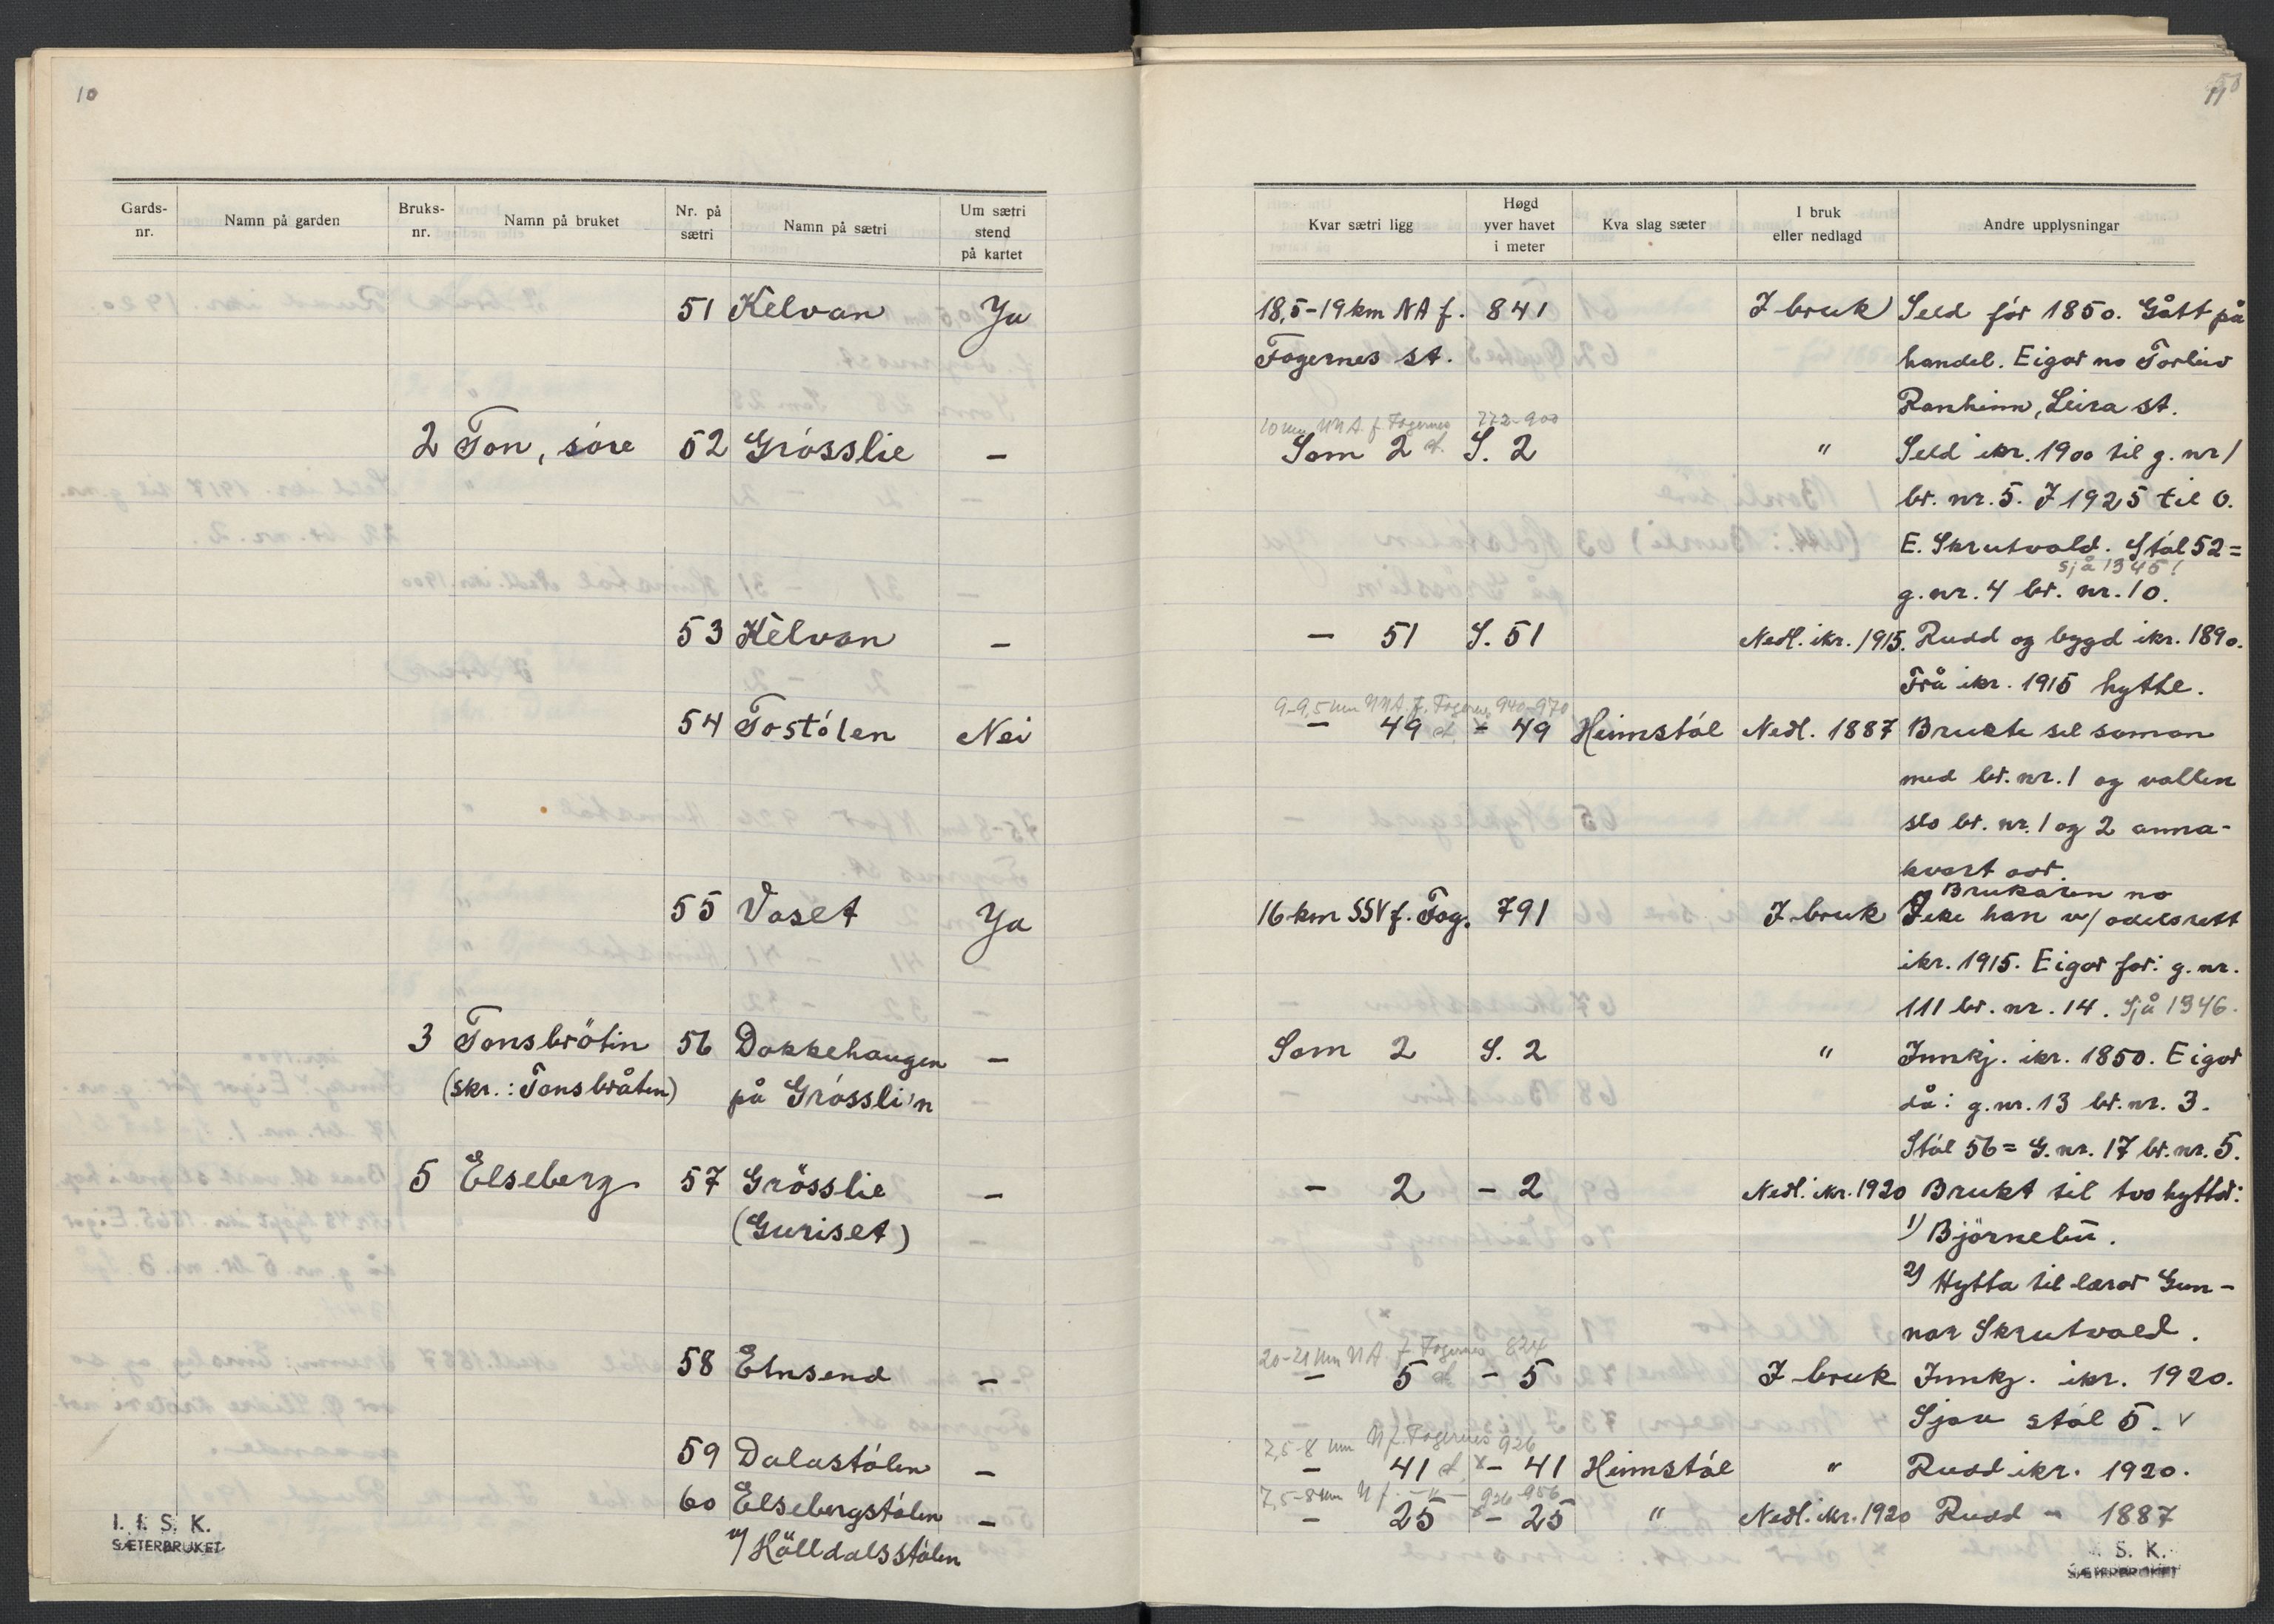 10
Gards-nr. Namn på garden Bruks-nr. Namn på bruket Nr. på sætri Namn på sætri Um sætri stend på kartet
51 Kelvan Ja
2 Ton, søre 52 Grösslie –
53 Kelvan –
54 Tostólen Nei
55 Vaset Ja
3 Tonsbrötin 56 Dokkehaugen –
(skr.: Tonsbråten) på Grössli'n
5 Elseberg 57 Grösslie –
(Guriset)
58 Etnsend –
59 Dalastólen –
60 Elsebergstólen –
v/ Hölldalsstólen
I. f. S. K.
SÆTERBRUKET
11
Kvar sætri ligg Høgd yver havet i meter Kva slag sæter I bruk eller nedlagd Andre upplysningar
18,5–19 km NA f. 841 I bruk Seld för 1850. Gått på
Fagernes st. handel. Eigar no Torleiv
Ranheim, Leira st.
10 km NNA f Fagernes 772–900
Som 2 S. 2 " Seld ikr. 1900 til g. nr 1
br. nr. 5. I 1925 til O.
E. Skrutvold. Stól 52 =
sjå 1345!
g. nr. 4 br. nr. 10.
– 51 S. 51 Nedl. ikr. 1915. Rudd og bygd ikr. 1890.
Frå ikr. 1915 hytte.
9–9,5 km NNA. f. Fagernes 940–970
– 49 – 49 Heimstól Nedl. 1887 Brukte sel saman
med br. nr. 1 og vollen
slo br. nr. 1 og 2 anna-
kvart aar.
Brukaren no
16 km SSV f. Fag. 791 I bruk Fekk han v/ odelsrett
ikr. 1915. Eigar før: g. nr.
111 br. nr. 14. Sjå 1346.
Som 2 S. 2 " Innkj. ikr. 1850. Eigar
då: g. nr. 13 br. nr. 3.
Stól 56 = G. nr. 17 br. nr. 5.
– 2 – 2 Nedl. ikr. 1920 Brukt til two hyttor:
1) Björnebu.
2) Hytta til lærar Gun-
nar Skrutvold.
20–21 km NA f Fagernes 824
– 5 – 5 I bruk Innkj. ikr. 1920.
Sjaa stól 5. v
7,5–8 km N f. Fagernes 926
– 41 x – 41 Heimstól " Rudd ikr. 1920.
7,5–8 km N f. – " – 926–956
– 25 x – 25 " Nedl. ikr. 1920 Rudd – 1887
S. K.
SÆTERBRUKET